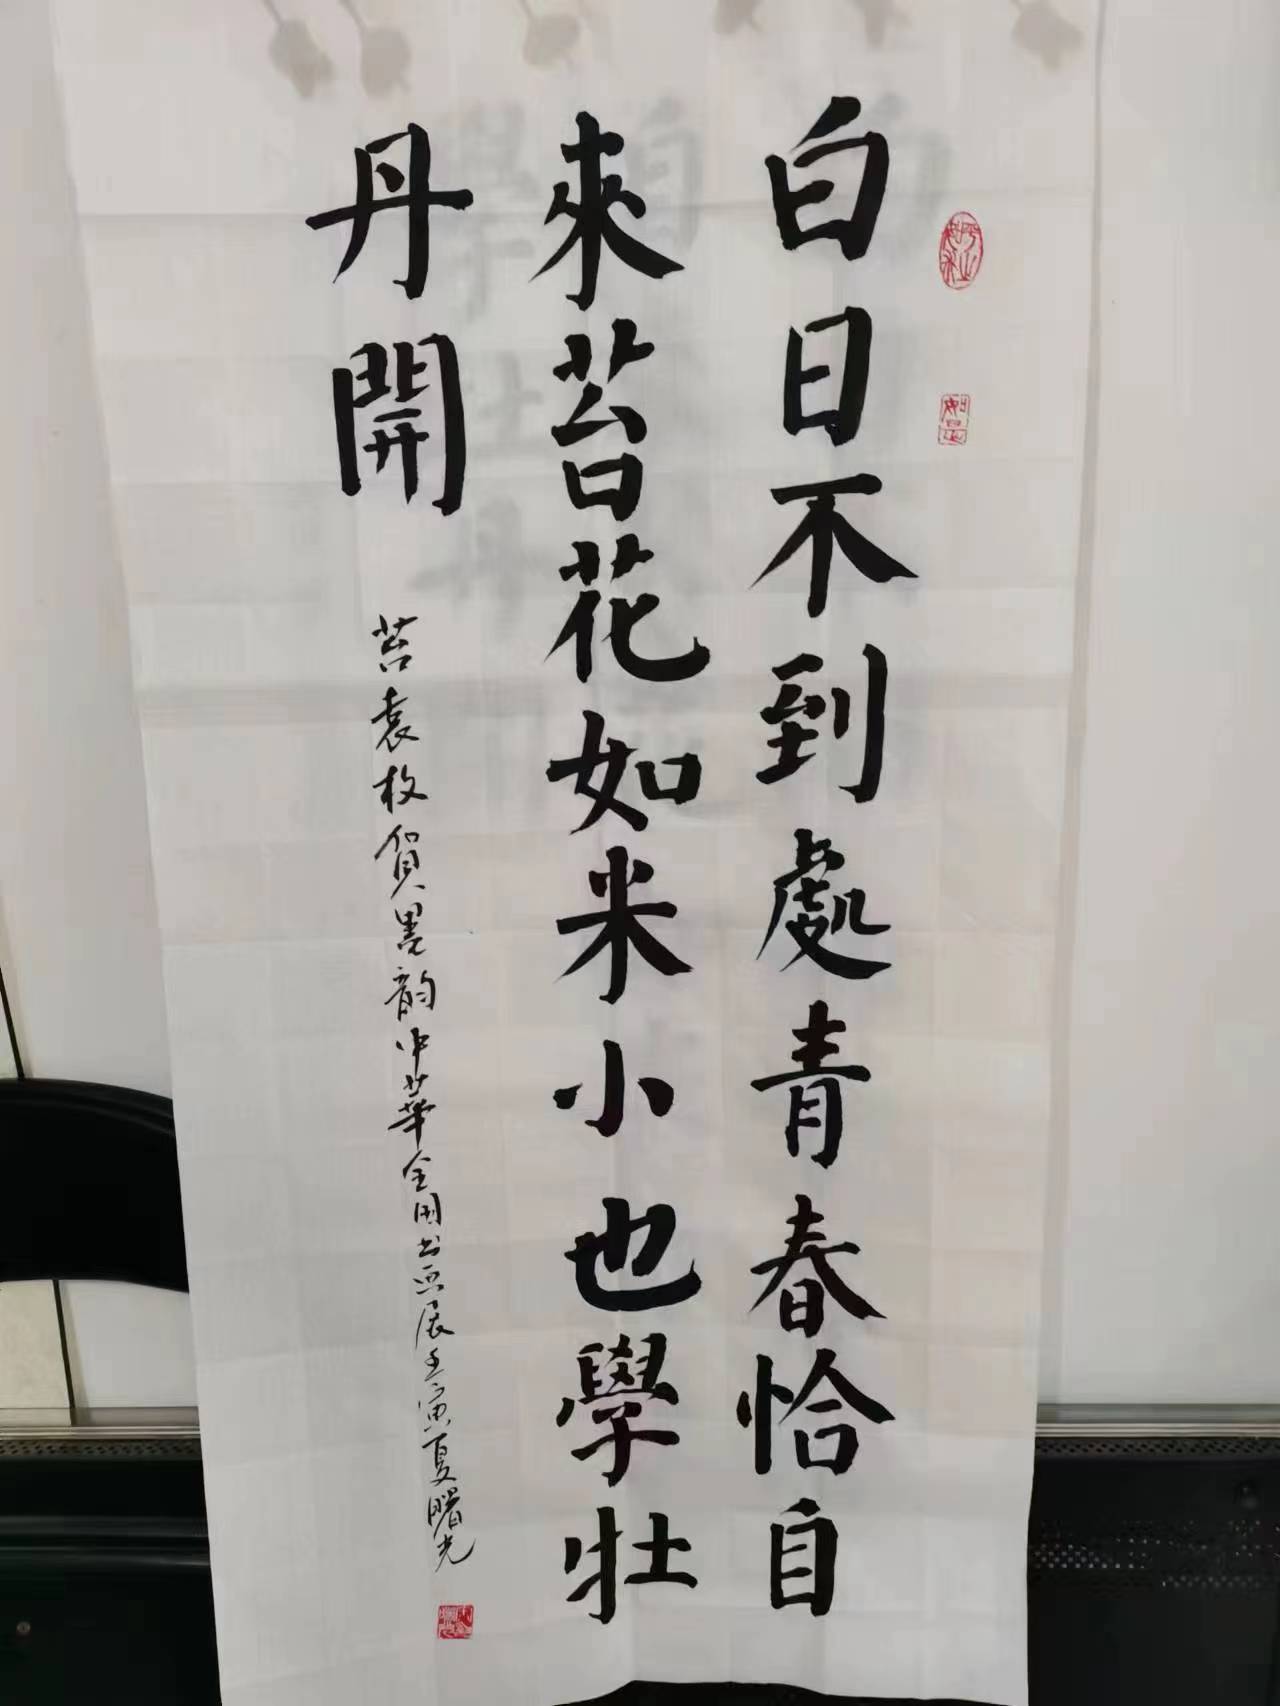 白日不到處青春恰自
來苔花如米小也學壮
丹開
苔袁枚賀墨韵中華全国书画展壬寅夏曙光
如是